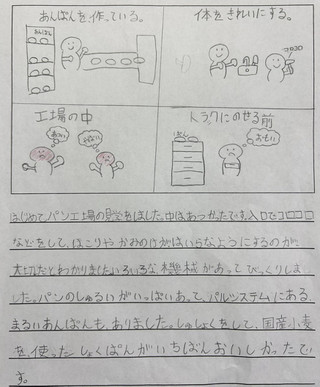 あんぱんを、作っている。
体をきれいにする。
あんぱん
コロコロ
工場の中
トラクにのせる前
あつい
あつい
ぱん
おもい
はじめてパン工場の見学をしました。中はあつかったです。入口でコロコロ
などをして、ほこりやかみのけがはいらなようにするのが、
大切だとわかりました。いろいろな機械があってびっくりしま
した。パンのしゅるいがいっぱいあって、パルシステムにある、
まるいあんぱんも、ありました。ししょくをして、国産小麦
を、使ったしょくぱんがいちばんおいしかったで
す。